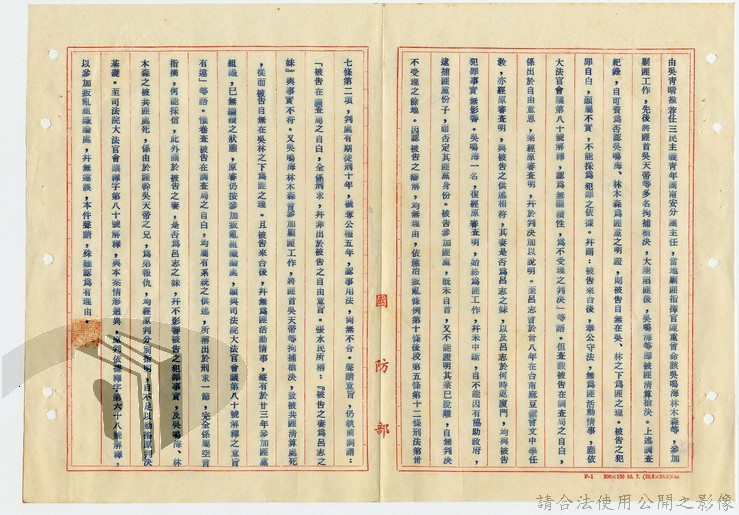 由吳青晴推荐任三民主義青年團南安分團主任，當地剿匪指揮官陳重會命該吳鳴海林木森等，參加
剿匪工作，先後將匪首吳天帝等多名拘捕槍決，大陸陷匪後，吳鳴海等即被匪清算槍決。上述調查
紀錄，自可資為否認吳鳴海、林木森為匪黨之明證，則被告自無在吳、林之下為匪之理。被告之犯
罪自白，顯屬不實，不能採為犯罪之依據。幷謂：被告來台後，奉公守法，無為匪活動情事，應依
大法官會議第八十號解釋，認為無繼續性，為不受理之判決」等語。但查該被告在調查局之自白，
係出於自由意思，業經原審查明，幷於判決加以說明。至呂志會於卅八年在台南麻豆鄒會文中學任
教，亦經原審查明，與被告之供述相符，其妻是否為呂志之妹，以及呂志於何時返廈門，均與被告
犯罪事實無影響。吳鳴海一名，復經原審查明，始終為匪工作，幷未中斷，自不能因有協助政府，
逮捕匪黨份子，而否定其匪黨身份。被告參加匪黨，既未自首，又不能證明其業已脫離，自無判決
不受理之餘地。因認被告之辯解，均無理由，依懲治叛亂條例第十條後段第五條第十二條刑法第卅
七條第二項，判處有期徒刑十年，褫奪公權五年，認事用法，尚無不合。聲請意旨，仍執前詞謂：
「被告在調查局之自白，全係刑求，幷非出於被告之自由意旨。張水民所稱：『被告之妻為呂志之
妹』與事實不符。又吳鳴海林木森會參加剿匪工作，將匪首吳天帝等拘捕槍決，致被共匪清算處死
，從而被告自無在吳林之下為匪之理。且被告來台後，幷無為匪活動情事，縱有於廿三年參加匪黨
組織，已無繼續之狀態，原審仍按參加叛亂組織論處，顯與司法院大法官會議第八十號解釋之意旨
有違」等語。惟卷查被告在調查局之自白，均屬有系統之供述，所稱出於刑求一節，完全係屬空言
指摘，何能採信，此外關於被告之妻，是否為呂志之妹，幷不影響被告之犯罪事實，及吳鳴海、林
木森之被共匪處死，係由於匪幹吳天帝之兄，為弟報仇，均經原判分別指明，自不足以動搖原判決
基礎。至司法院大法官會議釋字第八十號解釋，與本案情形迥異，原判依據釋字第六十八號解釋，
以參加叛亂組織論處，幷無違誤，本件聲請，殊難認為有理由。
國防部
請合法使用公開之影像